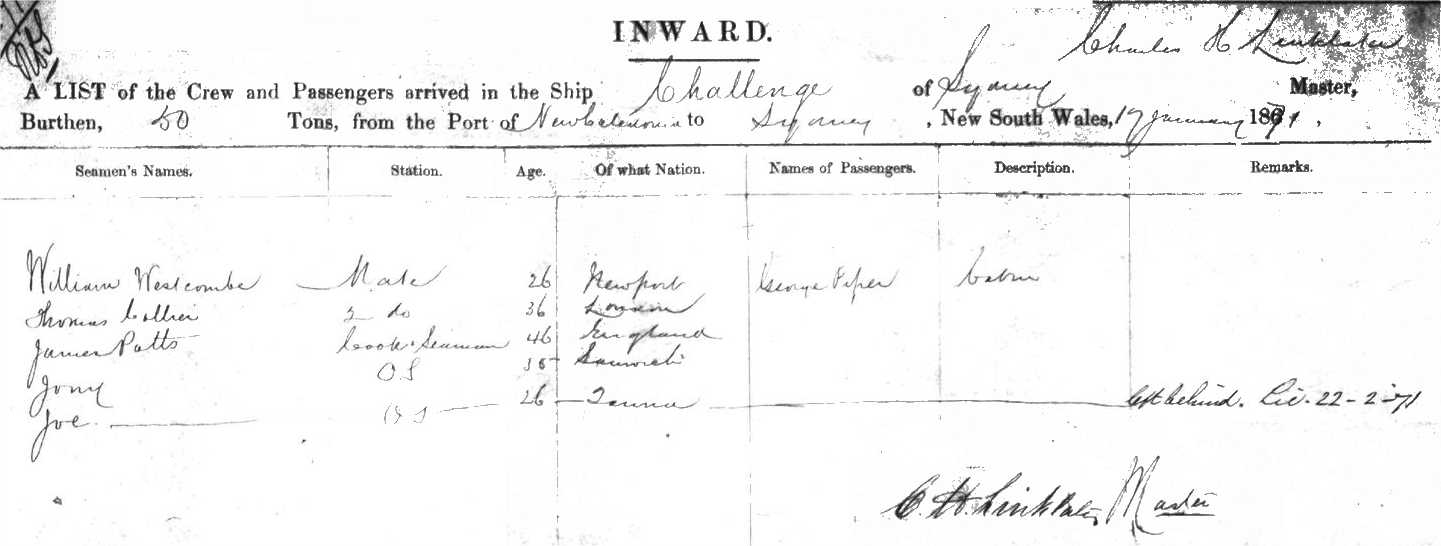 INWARD.
Charles H Linklater
A LIST of the Crew and Passengers arrived in the Ship Challenge of Sydney Master,
Burthen, 50 Tons, from the Port of New Caledonia to Sydney, New South Wales, 17 January 1871.
Seamen's Names. Station. Age. Of what Nation. Names of Passengers. Description. Remarks.
William Westcombe Mate 26 Newport George Piper Cabin
Thomas Collier 2 do 36 London
James Potts Cook & Seaman 46 England
Jony OS Sanwich
Joe OS 26 Tanna Left behind. Lic. 22-2-71
C. H. Linklater Master